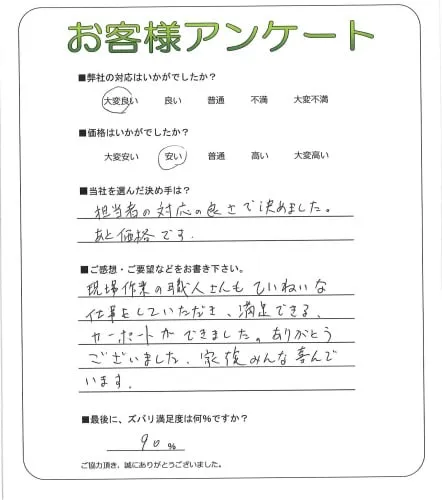 お客様アンケート
■弊社の対応はいかがでしたか？
大変良い 良い 普通 不満 大変不満
■価格はいかがでしたか？
大変安い 安い 普通 高い 大変高い
■当社を選んだ決め手は？
担当者の対応の良さで決めました。
あと価格です.
■ご感想・ご要望などをお書き下さい。
現場作業の職人さんもていねいな
仕事をしていただき、満足できる、
カーポートができました。ありがとう
ございました. 家族みんな喜んで
います.
■最後に、ズバリ満足度は何%ですか？
90 %
ご協力頂き、誠にありがとうございました。